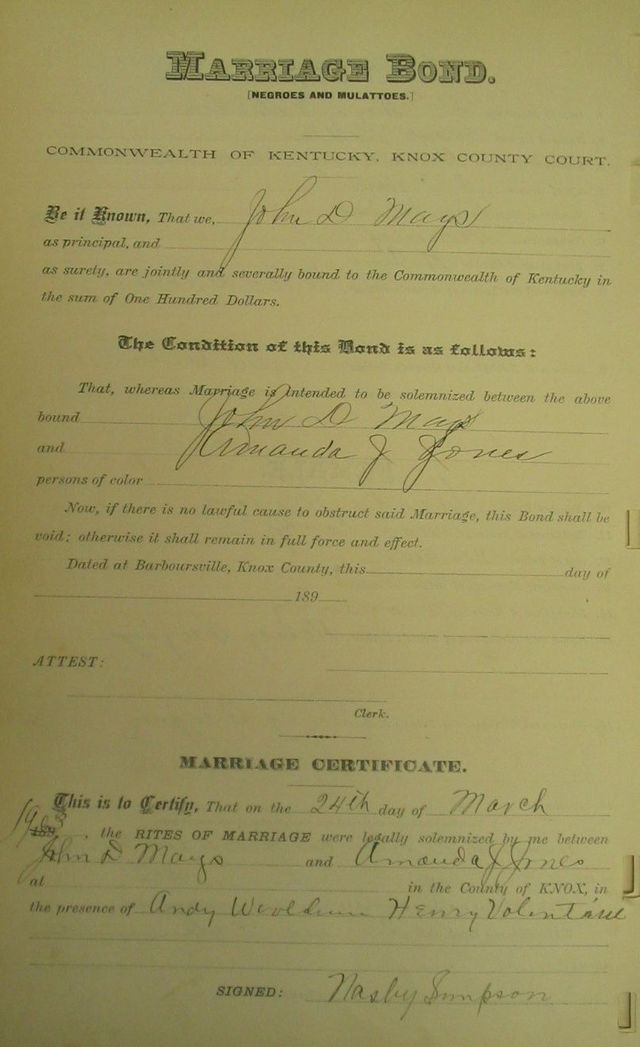 MARRIAGE BOND.
[NEGROES AND MULATTOES.]
COMMONWEALTH OF KENTUCKY, KNOX COUNTY COURT.
Be it Known, That we, John D Mays
as principal, and
as surety, are jointly and severally bound to the Commonwealth of Kentucky in
the sum of One Hundred Dollars.
The Condition of this Bond is as follows:
That, whereas Marriage is intended to be solemnized between the above
bound John D Mays
and Amanda J Jones
persons of color
Now, if there is no lawful cause to obstruct said Marriage, this Bond shall be
void; otherwise it shall remain in full force and effect.
Dated at Barboursville, Knox County, this day of
189
ATTEST:
Clerk.
MARRIAGE CERTIFICATE.
This is to Certify, That on the 24th day of March
1903, the RITES OF MARRIAGE were legally solemnized by me between
John D Mays and Amanda J Jones
at in the County of KNOX, in
the presence of Andy Henry
SIGNED: Nasby Simpson